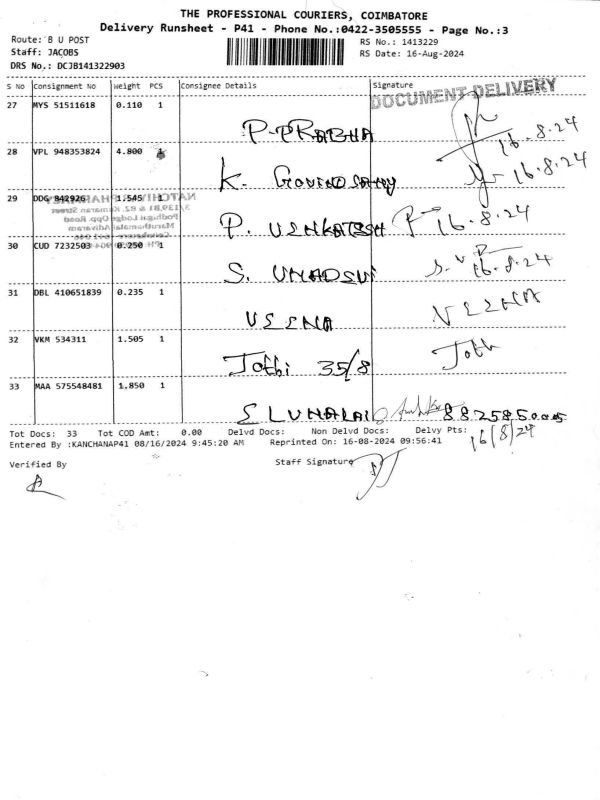 THE PROFESSIONAL COURIERS, COIMBATORE
Delivery Runsheet - P41 - Phone No.:0422-3505555 - Page No.:3
Route: B U POST
RS No.: 1413229
Staff: JACOBS
RS Date: 16-Aug-2024
DRS No.: DCJB141322903
S No Consignment No Weight PCS Consignee Details Signature
DOCUMENT DELIVERY
27 MYS 51511618 0.110 1
P. PRABHA 16.8.24
28 VPL 948353824 4.800
K. GOVINDSAMY 16.8.24
29 DDG 842926 1.545 1
P. VENKATESH 16.8.24
30 CUD 7232503 0.250 1
S. UMADEVI 16.8.24
31 DBL 410651839 0.235 1
VEENA VEENA
32 VKM 534311 1.505 1
Jothi 35/8 Joth
33 MAA 575548481 1.850 1
16/8/24
Tot Docs: 33 Tot COD Amt: 0.00 Delvd Docs: Non Delvd Docs: Delvy Pts:
Entered By :KANCHANAP41 08/16/2024 9:45:20 AM Reprinted On: 16-08-2024 09:56:41
Verified By Staff Signature